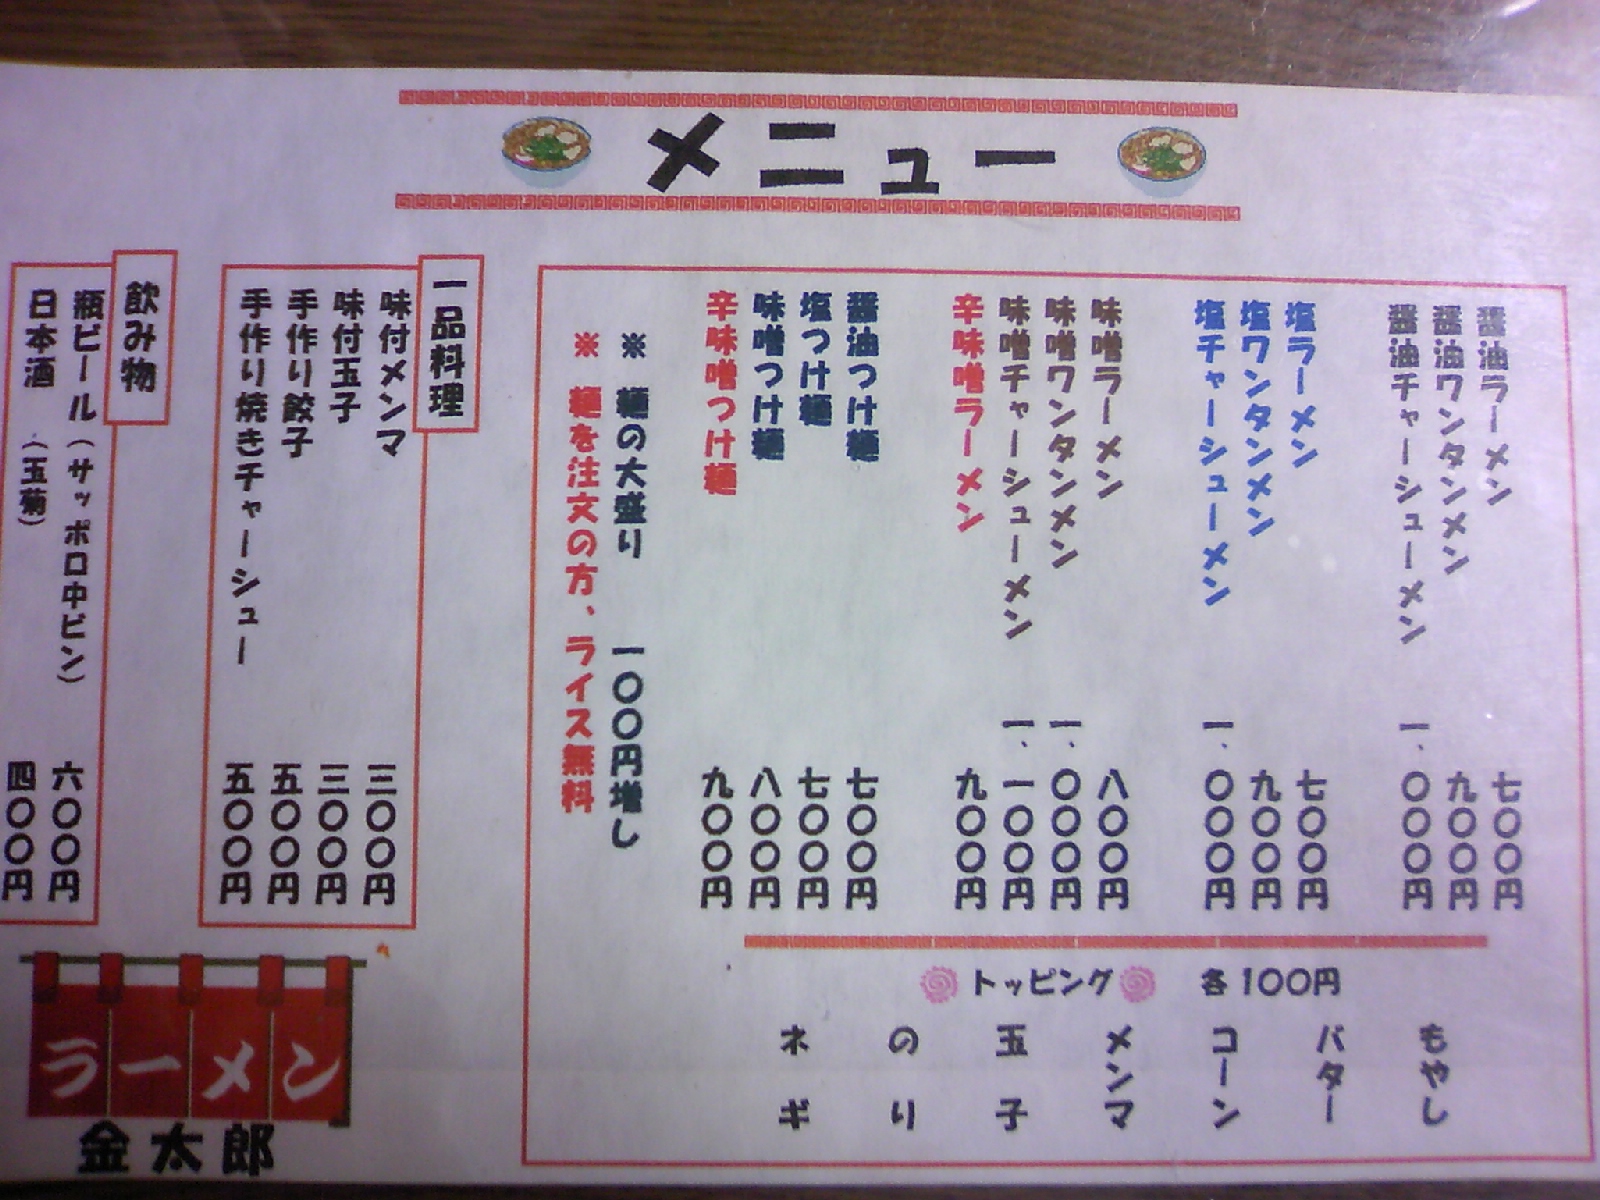 メニュー
醤油ラーメン 七〇〇円
醤油ワンタンメン 九〇〇円
醤油チャーシューメン 一、〇〇〇円
塩ラーメン 七〇〇円
塩ワンタンメン 九〇〇円
塩チャーシューメン 一、〇〇〇円
味噌ラーメン 八〇〇円
味噌ワンタンメン 一、〇〇〇円
味噌チャーシューメン 一、一〇〇円
辛味噌ラーメン 九〇〇円
醤油つけ麺 七〇〇円
塩つけ麺 七〇〇円
味噌つけ麺 八〇〇円
辛味噌つけ麺 九〇〇円
※ 麺の大盛り 一〇〇円増し
※ 麺を注文の方、ライス無料
トッピング 各100円
もやし
バター
コーン
メンマ
玉子
のり
ネギ
一品料理
味付メンマ 三〇〇円
味付玉子 三〇〇円
手作り餃子 五〇〇円
手作り焼きチャーシュー 五〇〇円
飲み物
瓶ビール（サッポロ中ビン） 六〇〇円
日本酒（玉菊） 四〇〇円
ラーメン
金太郎